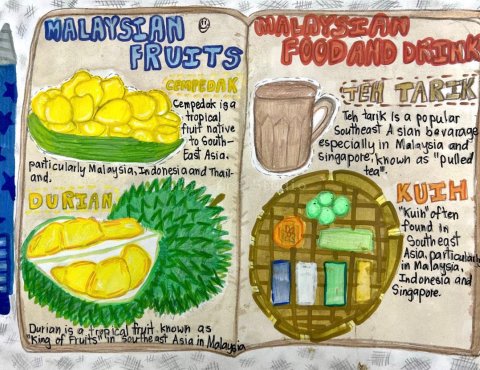 MALAYSIAN
FRUITS
CEMPEDAK
Cempedak is a
tropical
fruit native
to South-
East Asia.
particularly Malaysia, Indonesia and Thail-
and.
DURIAN
Durian is a tropical fruit known as
"King of Fruits" in Southeast Asia in Malaysia
MALAYSIAN
FOOD AND DRINK
TEH TARIK
Teh tarik is a popular
Southeast Asian bavarage
especially in Malaysia and
Singapore, known as "pulled
tea".
KUIH
"Kuih" often
found in
Southeast
Asia, particularly
in Malaysia,
Indonesia and
Singapore.